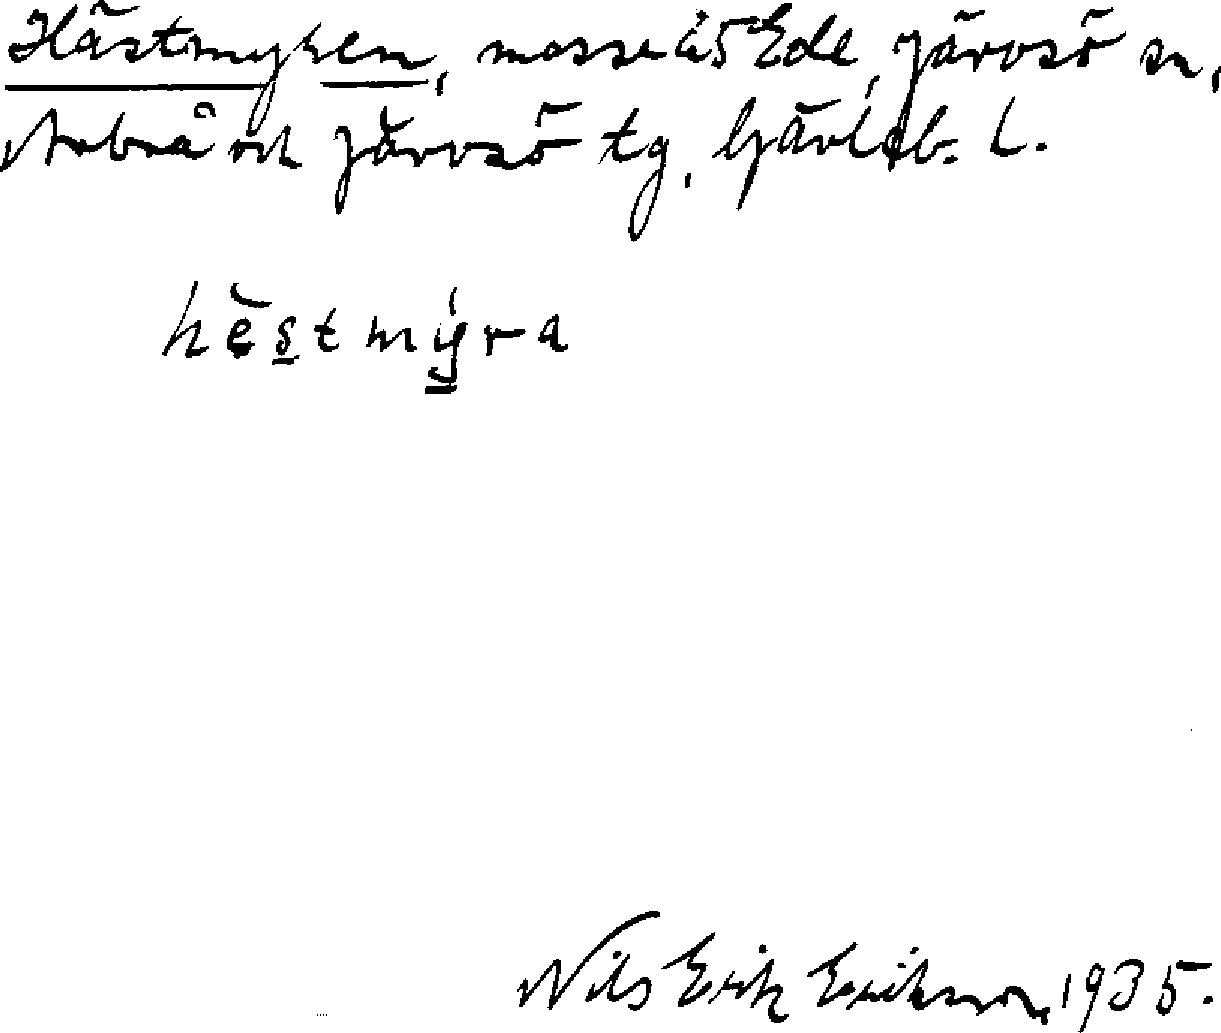 Hästmyren, mosse å 5 Ede, Järvsö sn,
Arbrå och Järvsö tg, Gävleb. l.
hèstmýra
Nils Erik Eriksson, 1935.